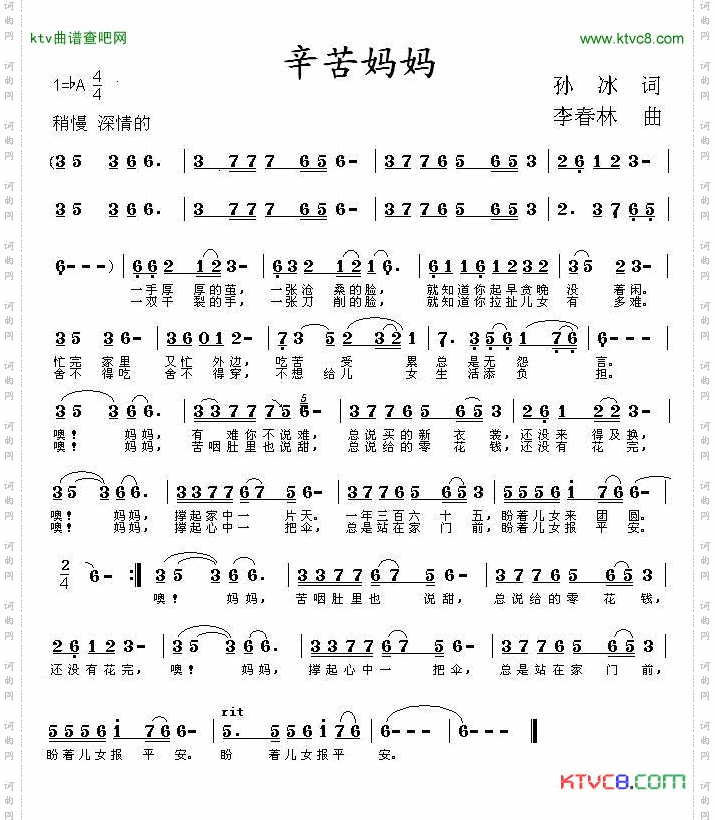 ktv曲谱查吧网
www.ktvc8.com
辛苦妈妈
1=♭A 4/4
孙 冰 词
稍慢 深情的
李春林 曲
(35 366. | 3 777 656- | 37765 653 | 26123- |
35 366. | 3 777 656- | 37765 653 | 2. 3765 |
6---) | 6622 123- | 632 121 6. | 6116161232 23- |
一手厚 厚的茧， 一张沧 桑的脸， 就知道你起早贪晚 没 着闲。
一双干 裂的手， 一张刀 削的脸， 就知道你拉扯儿女 有 多难。
35 35 36012- | 73 52 3 321 | 7. 355176 | 6---|
忙完 家里 又忙 外边， 吃苦 受 累 总 是无 怨 言。
舍不 得吃 舍不 得穿， 不想 给儿 女 生 活添 负 担。
35 3 366. | 33777756- | 377665 653 | 26 1 223- |
噢！ 妈妈， 有 难你不说难， 总说买的新 衣 裳， 还没来 得及换，
噢！ 妈妈， 苦咽肚里也说甜， 总说给的零 花 钱， 还没有 花完，
35 3 366. | 3377 67 56- | 337765 653 | 5556i 7656 |
噢！ 妈妈， 撑起家中一 片天。 一年三百六 十五， 盼着儿女来 团 圆。
噢！ 妈妈， 撑起心中一 把伞。 总是站在家 门 前， 盼着儿女报 平 安。
2/4 6- :‖ 35 3 366. | 33776756- | 337765 653 |
噢！ 妈妈， 苦咽肚里也 说甜， 总说给的零 花 钱，
26123- | 35 366. | 33776756- | 377765 653 |
还没有花完， 噢！ 妈妈， 撑起心中一 把伞， 总是站在家 门 前，
rit
5556i 766- | 5. 556i76 | 6--- | 6--- ‖
盼着儿女报 平 安。 盼 着儿女报平 安。
KTVC8.COM